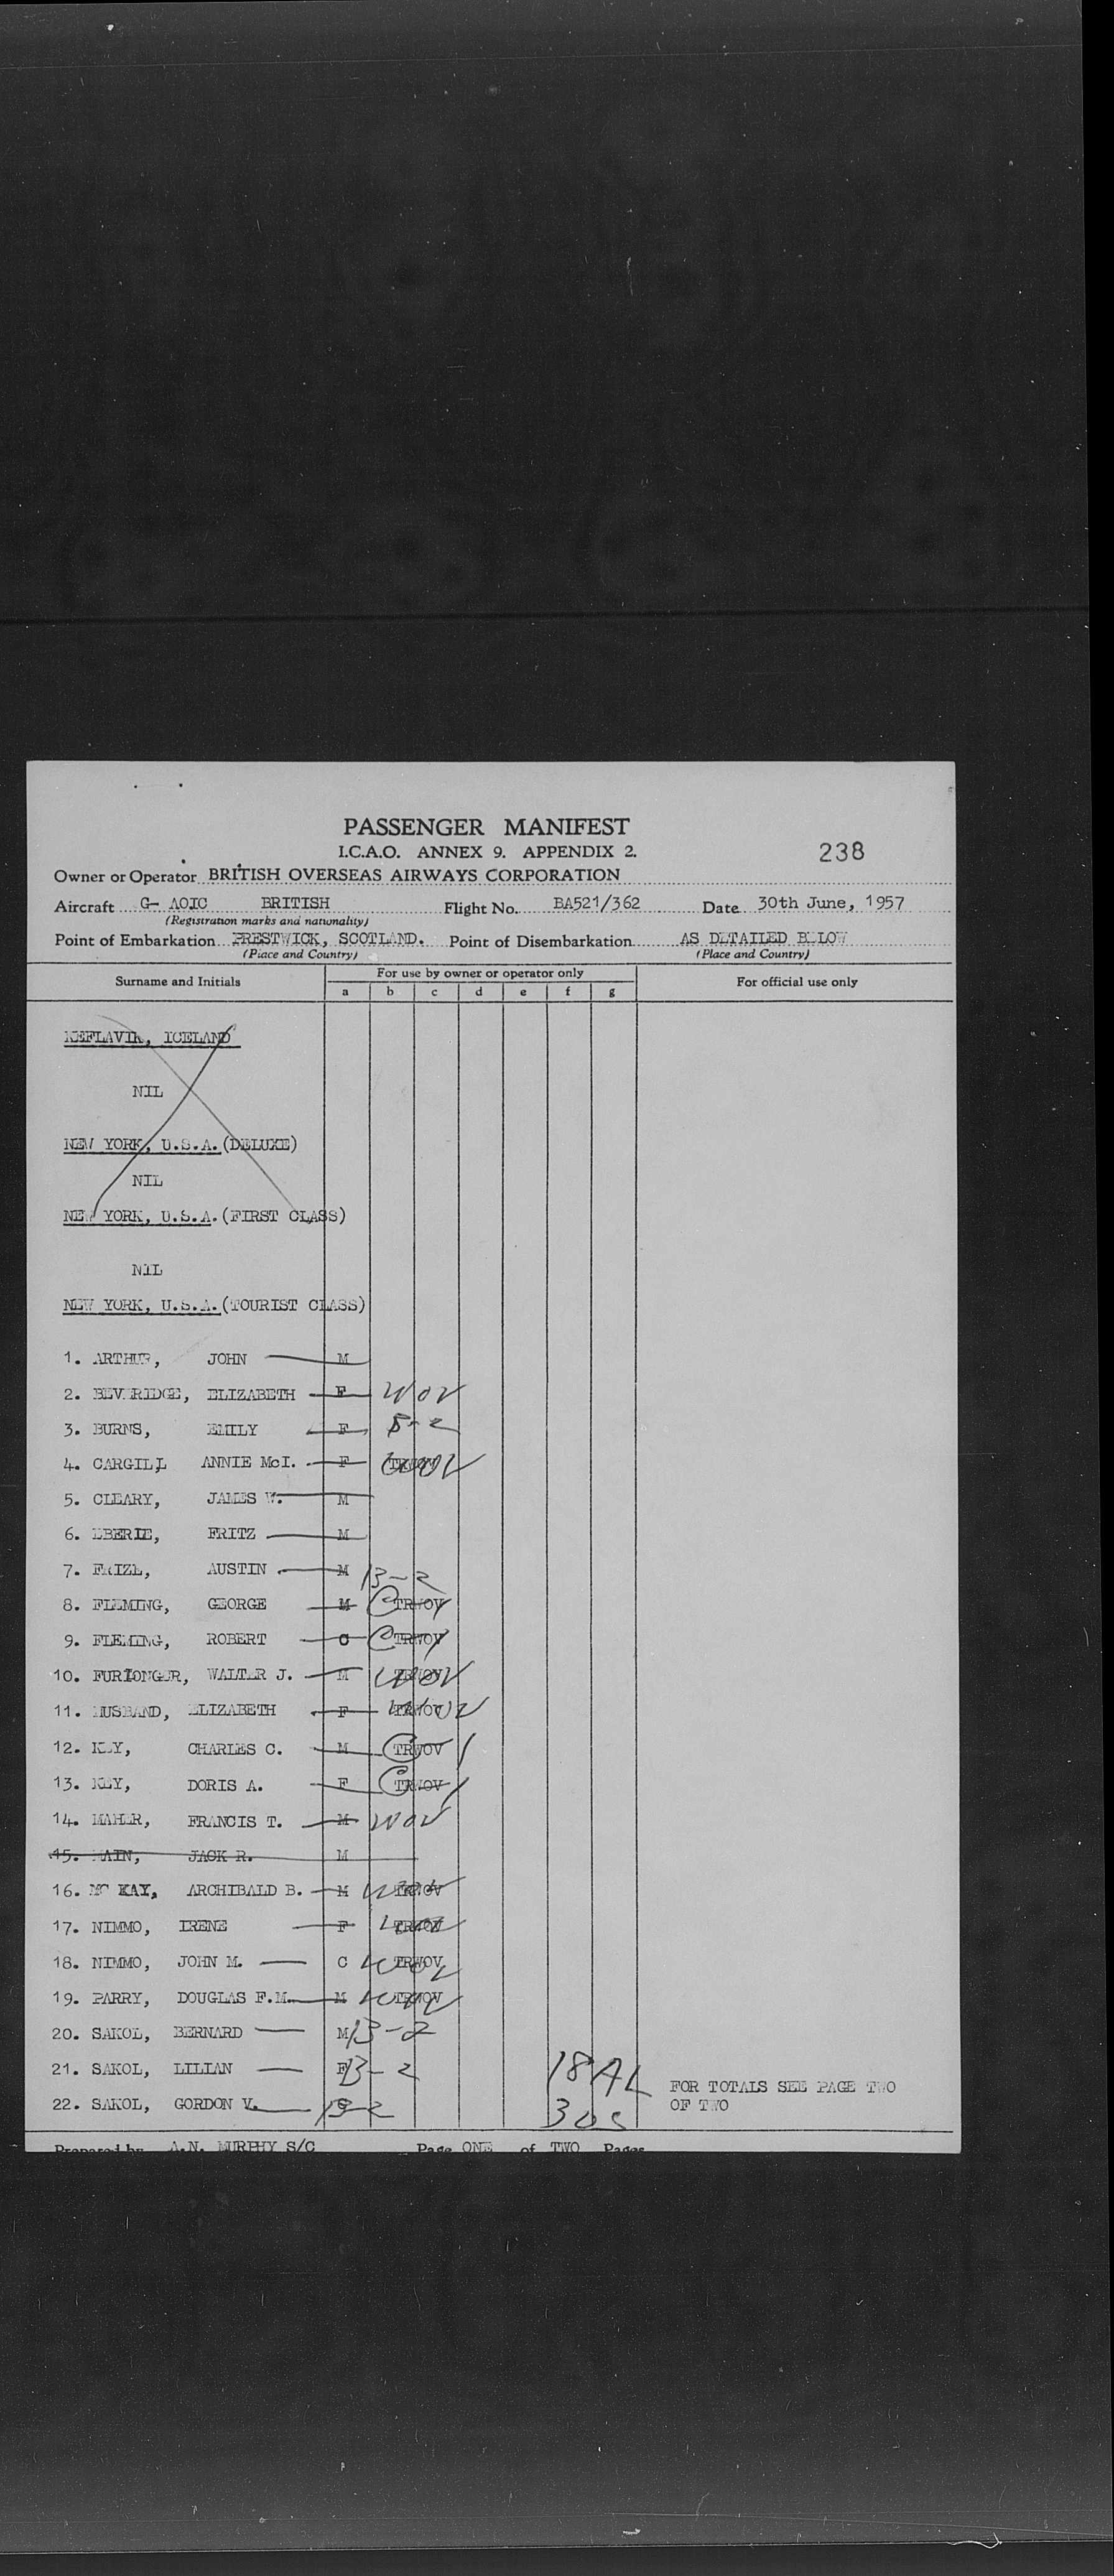 PASSENGER MANIFEST
I.C.A.O. ANNEX 9. APPENDIX 2.
238
Owner or Operator BRITISH OVERSEAS AIRWAYS CORPORATION
Aircraft G- AOIC BRITISH Flight No. BA521/362 Date 30th June, 1957
(Registration marks and nationality)
Point of Embarkation PRESTWICK, SCOTLAND. Point of Disembarkation AS DETAILED BELOW
(Place and Country) (Place and Country)
Surname and Initials For use by owner or operator only For official use only
a b c d e f g
KEFLAVIK, ICELAND
NIL
NEW YORK, U.S.A. (DELUXE)
NIL
NEW YORK, U.S.A. (FIRST CLASS)
NIL
NEW YORK, U.S.A. (TOURIST CLASS)
1. ARTHUR, JOHN M
2. BEVERIDGE, ELIZABETH F WOV
3. BURNS, EMILY F B-2
4. CARGILL, ANNIE McI. F
5. CLEARY, JAMES W. M
6. EBERLE, FRITZ M
7. AUSTIN M B-2
8. FLEMING, GEORGE M C TRWOV
9. FLEMING, ROBERT C C TRWOV
10. FURLONGER, WALTER J. M TRWOV
11. HUSBAND, ELIZABETH F TRWOV
12. KEY, CHARLES C. M C TRWOV
13. KEY, DORIS A. F C TRWOV
14. MAHER, FRANCIS T. M WOV
15. MAIN, JACK R. M
16. MC KAY, ARCHIBALD B. M TRWOV
17. NIMMO, IRENE F TRWOV
18. NIMMO, JOHN M. C TRWOV
19. PARRY, DOUGLAS F.M. M TRWOV
20. SAKOL, BERNARD M B-2
21. SAKOL, LILIAN F B-2 18 AL FOR TOTALS SEE PAGE TWO
22. SAKOL, GORDON V. B-2 3 US OF TWO
Prepared by A.N. MURPHY S/C Page ONE of TWO Pages